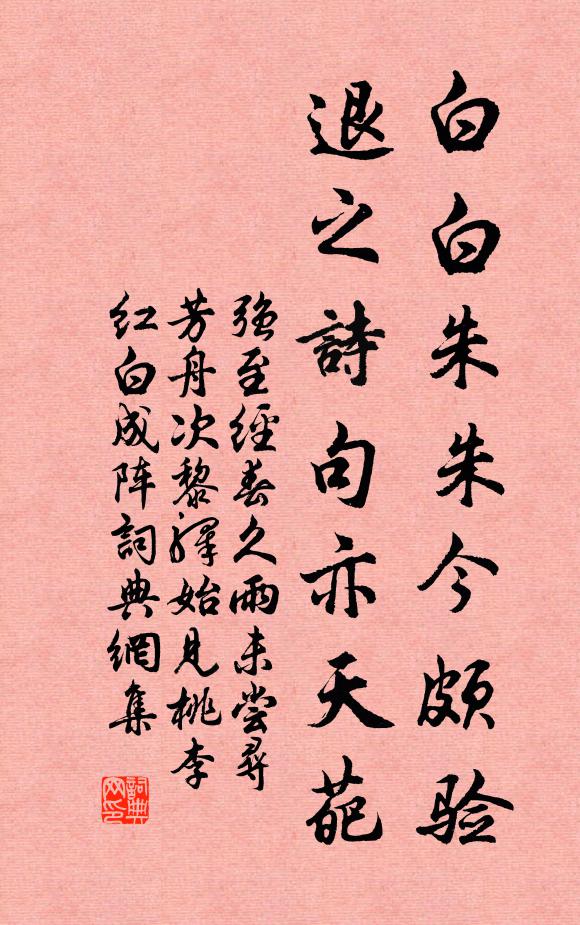 白白朱朱今頗验
退之詩句亦天葩
強至經春久雨未尝尋
芳舟次黎驿始見桃李
红白成阵詞典網集
詞典
网印